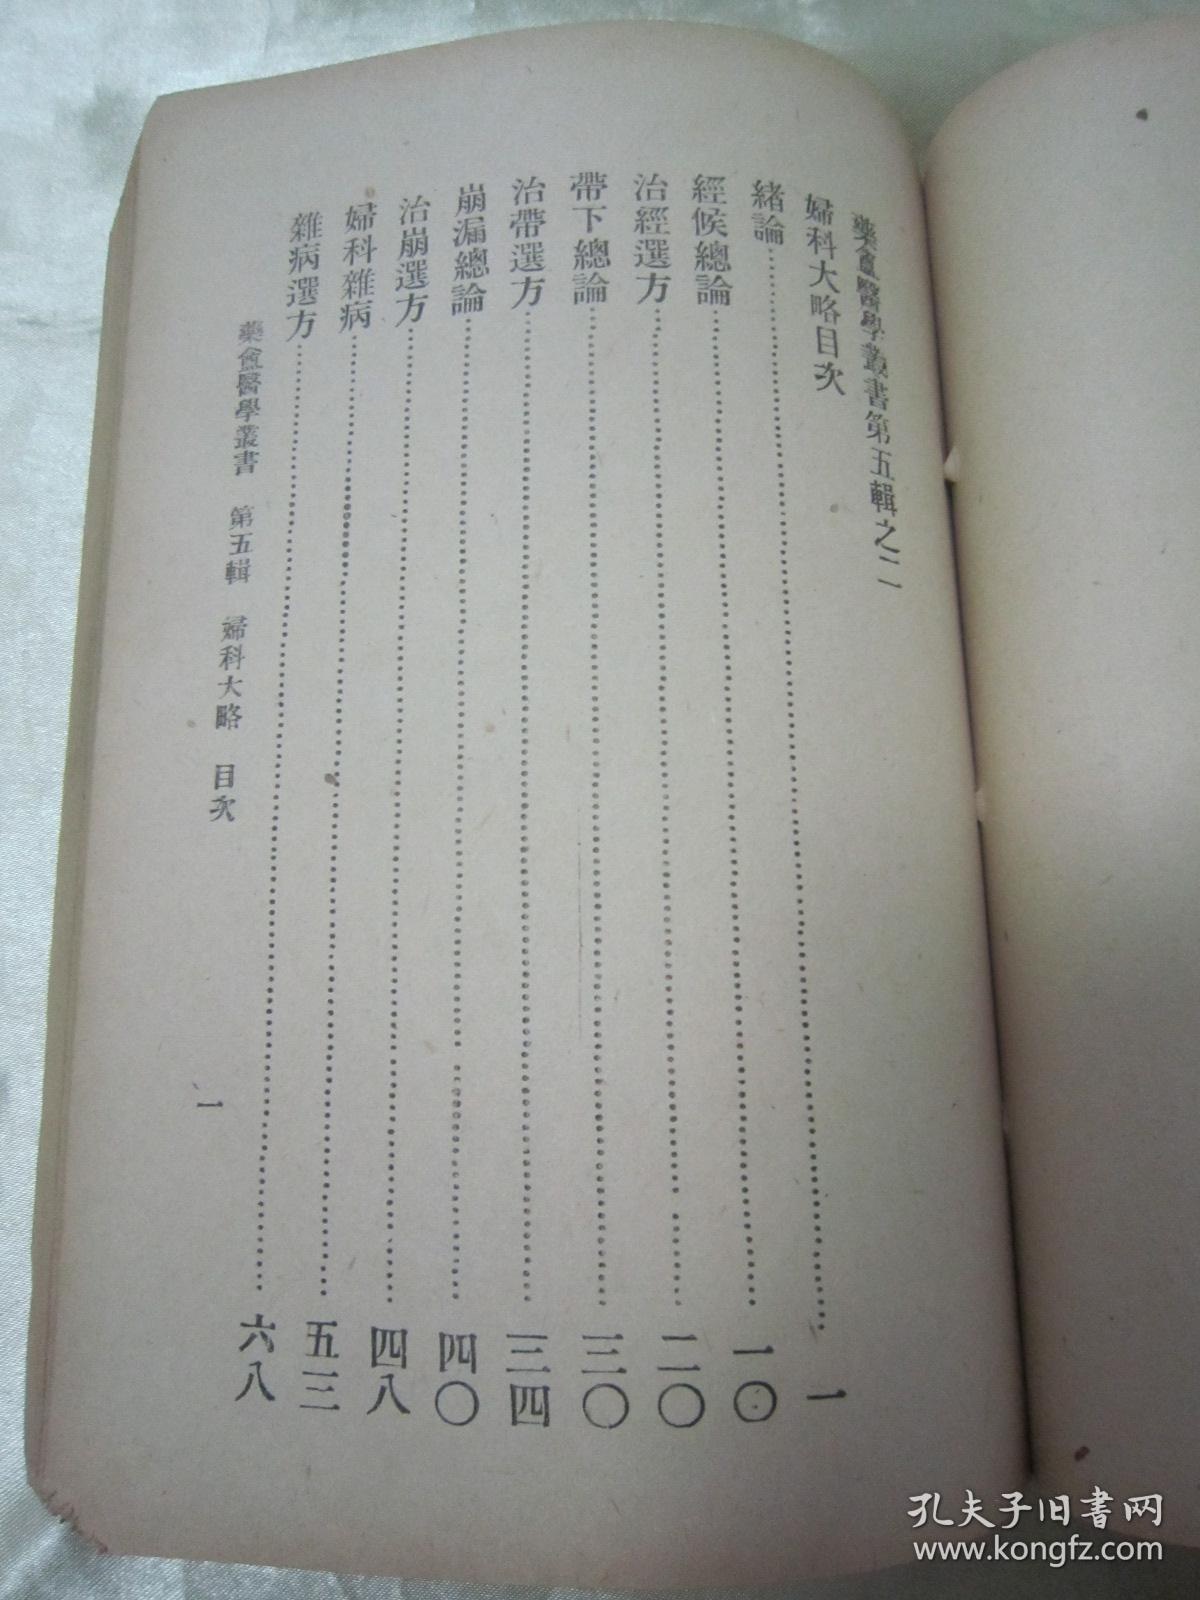 藥盦醫學叢書第五輯之二
婦科大略目次
緒論……一
經候總論……一〇
治經選方……二〇
帶下總論……三〇
治帶選方……三四
崩漏總論……四〇
治崩選方……四八
婦科雜病……五三
雜病選方……六八
藥盦醫學叢書 第五輯 婦科大略 目次 一
孔夫子旧书网
www.kongfz.com